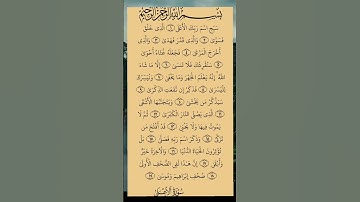 بِسْمِ اللَّهِ الرَّحْمَنِ الرَّحِيمِ
سَبِّحِ اسْمَ رَبِّكَ الْأَعْلَى ١ الَّذِي خَلَقَ
فَسَوَّى ٢ وَالَّذِي قَدَّرَ فَهَدَى ٣ وَالَّذِي
أَخْرَجَ الْمَرْعَى ٤ فَجَعَلَهُ غُثَاءً أَحْوَى
٥ سَنُقْرِئُكَ فَلَا تَنْسَى ٦ إِلَّا مَا شَاءَ
اللَّهُ إِنَّهُ يَعْلَمُ الْجَهْرَ وَمَا يَخْفَى ٧ وَنُيَسِّرُكَ
لِلْيُسْرَى ٨ فَذَكِّرْ إِنْ نَفَعَتِ الذِّكْرَى ٩
سَيَذَّكَّرُ مَنْ يَخْشَى ١٠ وَيَتَجَنَّبُهَا الْأَشْقَى
١١ الَّذِي يَصْلَى النَّارَ الْكُبْرَى ١٢ ثُمَّ لَا
يَمُوتُ فِيهَا وَلَا يَحْيَى ١٣ قَدْ أَفْلَحَ مَنْ
تَزَكَّى ١٤ وَذَكَرَ اسْمَ رَبِّهِ فَصَلَّى ١٥ بَلْ
تُؤْثِرُونَ الْحَيَاةَ الدُّنْيَا ١٦ وَالْآخِرَةُ خَيْرٌ
وَأَبْقَى ١٧ إِنَّ هَذَا لَفِي الصُّحُفِ الْأُولَى
١٨ صُحُفِ إِبْرَاهِيمَ وَمُوسَى ١٩
سُورَةُ الْأَعْلَى